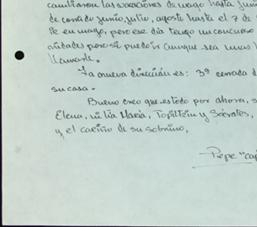 cambiaron las vacaciones de mayo hasta junio
de corrido junio, julio, agosto hasta el 7 de
Pe en mayo, pero ese día tengo un concurso
vidades pero si puedo ir aunque sea unas
llamarte.
La nueva dirección es: 3ª cerrada d
su casa.
Bueno creo que es todo por ahora, s
Elena, mi tía María, Topiltzin y Sócrates,
y, el cariño de su sobrino,
Pepe "cap